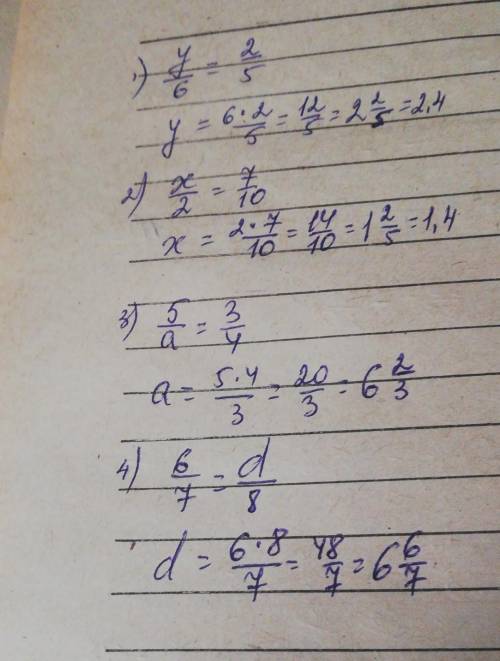 1) y/6 = 2/5
y = 6·2/5 = 12/5 = 2 2/5 = 2,4
2) x/2 = 7/10
x = 2·7/10 = 14/10 = 1 2/5 = 1,4
3) 5/a = 3/4
a = 5·4/3 = 20/3 = 6 2/3
4) 6/7 = d/8
d = 6·8/7 = 48/7 = 6 6/7